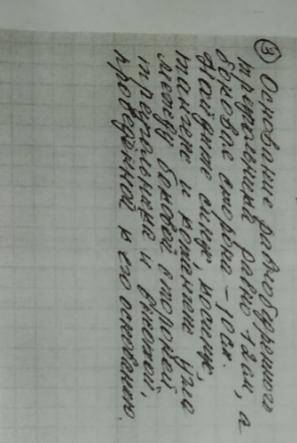 ③ Основание равнобедренного
треугольника равно 12 см, а
боковая сторона – 10 см.
Найдите синус, косинус,
тангенс и котангенс угла
между боковой стороной
треугольника и высотой,
проведенной к его основанию.